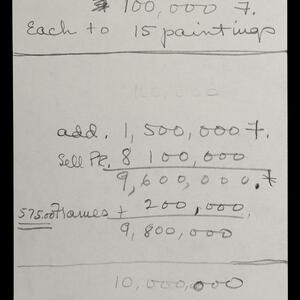 100,000 7.
Each to 15 paintings
100,000
add. 1,500,000 7.
Sell PR. 8 100,000
9,600,000.7
575.00 Frames + 200,000
9,800,000
10,000,000